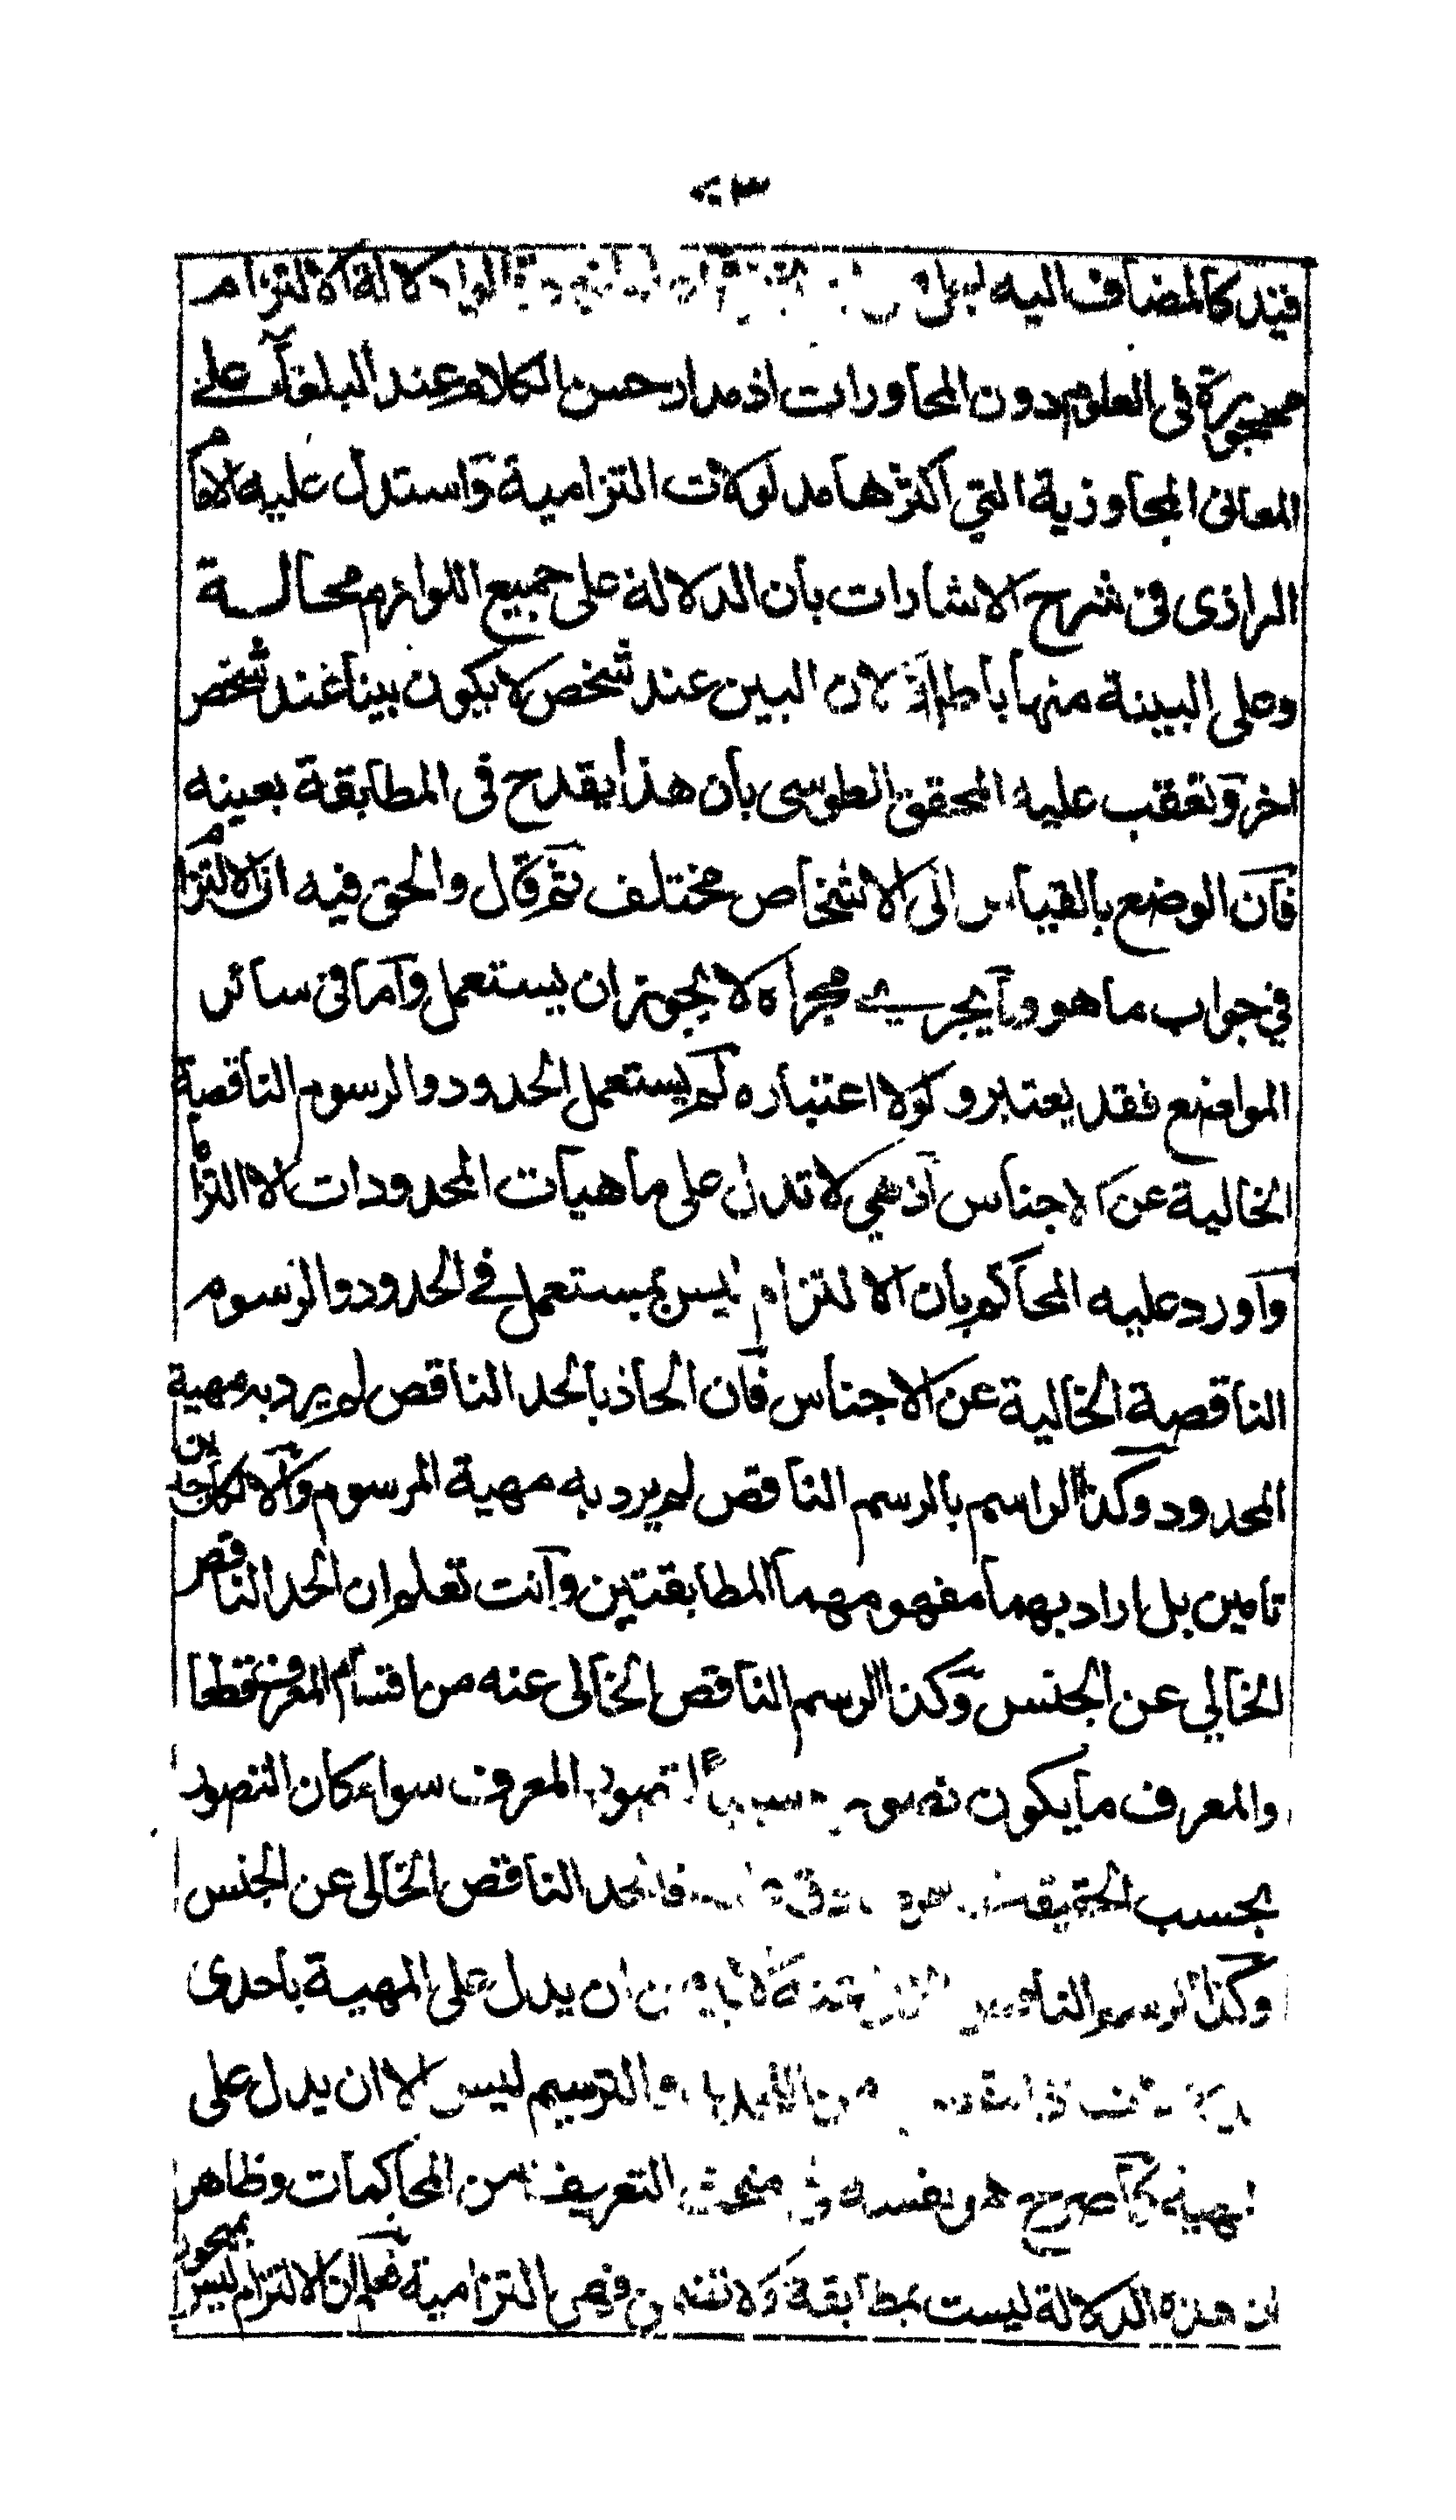 ٢٣
قيد كالمضاف اليه دلالة الالتزام
مهجورة فى العلوم دون المحاورات اذ مدار حسن الكلام عند البلغاء على
المعانى المجاوزية التي اكثرها مدلولات التزامية واستدل عليه الامام
الرازى فى شرح الاشارات بان الدلالة على جميع اللوازم محالة
وعلى البينة منها باطلة لان البين عند شخص لا يكون بينا عند شخص
اخر وتعقب عليه المحقق الطوسى بان هذا يقدح فى المطابقة بعينه
فان الوضع بالقياس الى الاشخاص مختلف ثم قال والحق فيه ان الالتزام
في جواب ما هو وما يجري مجراه لا يجوز ان يستعمل واما فى سائر
المواضع فقد يعتبر ولولا اعتباره لم يستعمل الحدود والرسوم الناقصة
الخالية عن الاجناس اذ هي لا تدل على ماهيات المحدودات الا التزاما
واورد عليه المحاكم بان الالتزام ليس بمستعمل في الحدود والرسوم
الناقصة الخالية عن الاجناس فان الحاد بالحد الناقص لم يرد به مهية
المحدود وكذا الراسم بالرسم الناقص لم يرد به مهية المرسوم والا لكانا حدين
تامين بل اراد بهما مفهومهما المطابقتين وانت تعلم ان الحد الناقص
الخالي عن الجنس وكذا الرسم الناقص الخالى عنه من اقسام المعرف قطعا
والمعرف ما يكون تصوره سببا لتصور المعرف سواء كان التصور
بحسب الحقيقة فالحد الناقص الخالى عن الجنس
وكذا الرسم الناقص ان يدل على المهية باحدى
من التحديد والترسيم ليس الا ان يدل على
المهية كما صرح هو بفسه فى مبحث التعريف من المحاكمات وظاهر
ان هذه الدلالة ليست بمطابقة ولا تضمن فهى التزامية فعلم ان الالتزام ليس بمهجور